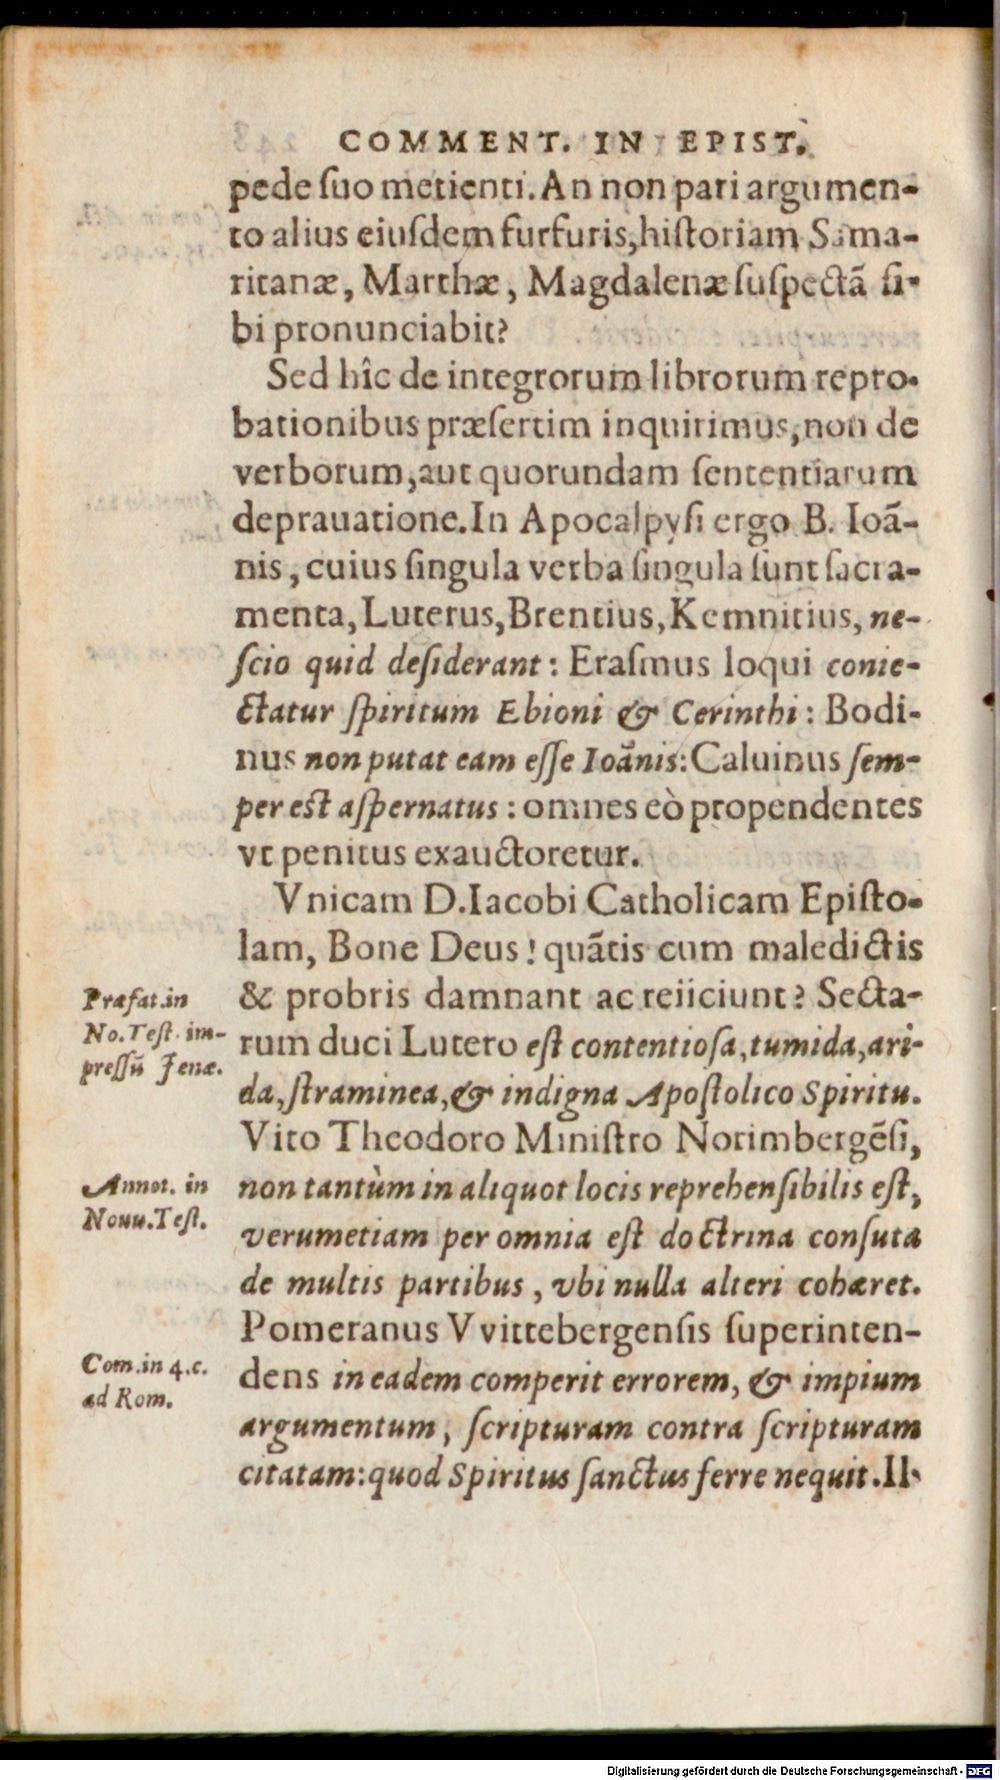 COMMENT. IN EPIST.
pede ſuo metienti. An non pari argumen-
to alius eiuſdem furfuris, hiſtoriam Sama-
ritanæ, Marthæ, Magdalenæ ſuſpectã ſi-
bi pronunciabit?
Sed hîc de integrorum librorum repro-
bationibus præſertim inquirimus, non de
verborum, aut quorundam ſententiarum
deprauatione. In Apocalpyſi ergo B. Ioã-
nis, cuius ſingula verba ſingula ſunt ſacra-
menta, Luterus, Brentius, Kemnitius, ne-
ſcio quid deſiderant: Eraſmus loqui conie-
ctatur ſpiritum Ebioni & Cerinthi: Bodi-
nus non putat eam eſſe Ioãnis: Caluinus ſem-
per est aſpernatus: omnes eò propendentes
vt penitus exauctoretur.
Vnicam D. Iacobi Catholicam Epiſto-
lam, Bone Deus! quãtis cum maledictis
& probris damnant ac reiiciunt? Secta-
Præfat. in
No. Teſt. im-
preſſũ Jenæ.
rum duci Lutero eſt contentioſa, tumida, ari-
da, ſtraminea, & indigna Apoſtolico Spiritu.
Vito Theodoro Miniſtro Norimbergẽſi,
Annot. in
Nouu. Teſt.
non tantùm in aliquot locis reprehenſibilis eſt,
verumetiam per omnia eſt doctrina conſuta
de multis partibus, vbi nulla alteri cohæret.
Pomeranus Vvittebergenſis ſuperinten-
Com. in 4. c.
ad Rom.
dens in eadem comperit errorem, & impium
argumentum, ſcripturam contra ſcripturam
citatam: quod Spiritus ſanctus ferre nequit. Il-
Digitalisierung gefördert durch die Deutsche Forschungsgemeinschaft - DFG